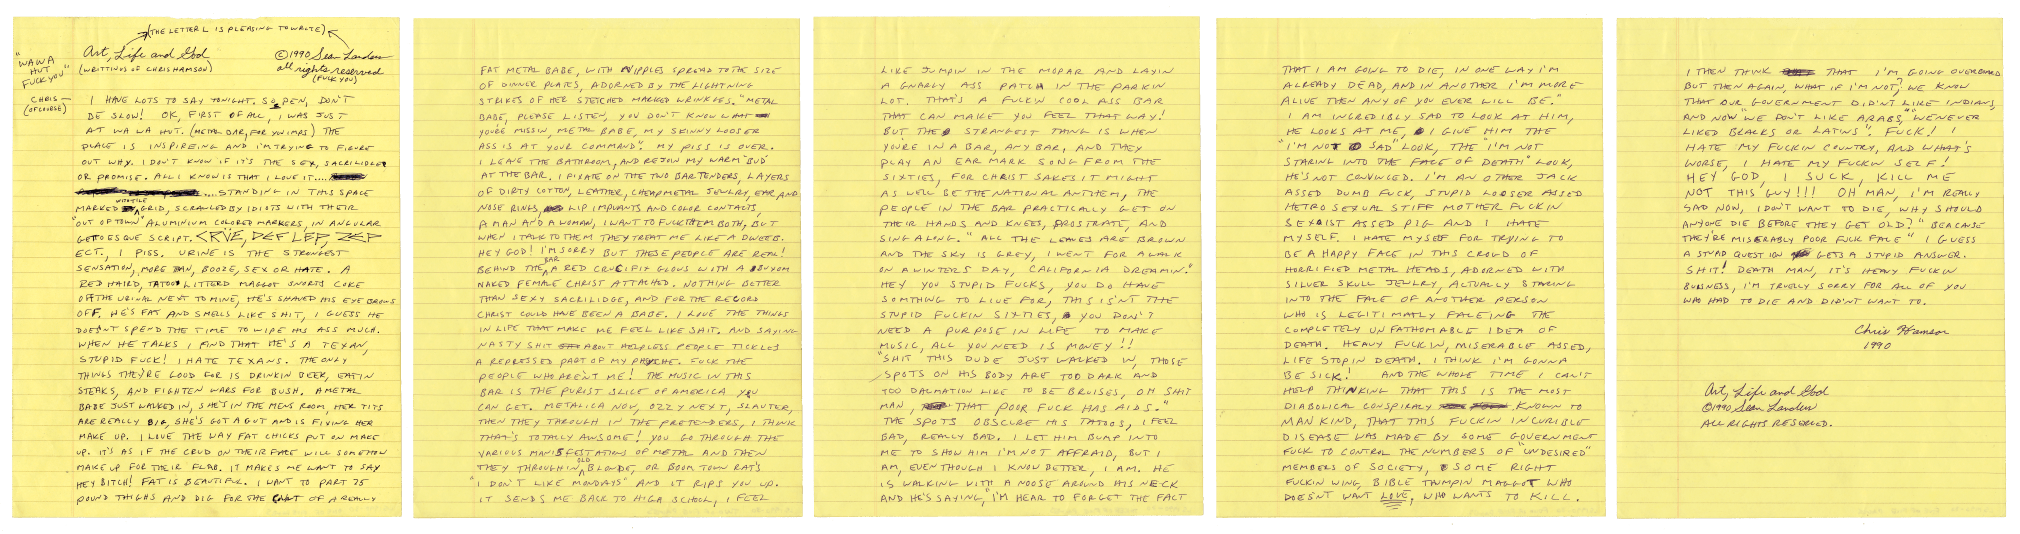 (THE LETTER L IS PLEASING TO WRITE)
"WA WA
HUT
FUCK YOU"
Art, Life and God
©1990 Sean Landers
(WRITTINGS OF CHRIS HAMSON)
all rights reserved
(FUCK YOU)
CHRIS
(OF COURSE)
I HAVE LOTS TO SAY TONIGHT. SO PEN, DON'T
BE SLOW! OK, FIRST OF ALL, I WAS JUST
AT WA WA HUT. (METAL BAR, FOR YOU IMPS) THE
PLACE IS INSPIREING AND I'M TRYING TO FIGURE
OUT WHY. I DON'T KNOW IF IT'S THE SEX, SACRILIDGE
OR PROMISE. ALL I KNOW IS THAT I LOVE IT....
....STANDING IN THIS SPACE
MARKED WITH TILE GRID, SCRAWLED BY IDIOTS WITH THEIR
"OUT OF TOWN" ALUMINIUM COLORED MARKERS, IN ANGULAR
GETTOESQUE SCRIPT. CRÜE, DEF LEP, ZEP
ECT., I PISS. URINE IS THE STRONGEST
SENSATION, MORE THAN, BOOZE, SEX OR HATE. A
RED HAIRD, TATOO LITTERD MAGGOT SNORTS COKE
OFF THE URINAL NEXT TO MINE, HE'S SHAVED HIS EYE BROWS
OFF. HE'S FAT AND SMELLS LIKE SHIT, I GUESS HE
DOESN'T SPEND THE TIME TO WIPE HIS ASS MUCH.
WHEN HE TALKS I FIND THAT HE'S A TEXAN,
STUPID FUCK! I HATE TEXANS. THE ONLY
THINGS THEY'RE GOOD FOR IS DRINKIN BEER, EATIN
STEAKS, AND FIGHTEN WARS FOR BUSH. A METAL
BABE JUST WALKED IN, SHE'S IN THE MENS ROOM, HER TITS
ARE REALLY BIG, SHE'S GOT A GUT AND IS FIXING HER
MAKE UP. I LOVE THE WAY FAT CHICKS PUT ON MAKE
UP. IT'S AS IF THE CRUD ON THEIR FACE WILL SOMEHOW
MAKE UP FOR THEIR FLAB. IT MAKES ME WANT TO SAY
HEY BITCH! FAT IS BEAUTIFUL. I WANT TO PART 75
POUND THIGHS AND DIG FOR THE CUNT OF A REALLY
FAT METAL BABE, WITH NIPPLES SPREAD TO THE SIZE
OF DINNER PLATES, ADORNED BY THE LIGHTNING
STRIKES OF HER STETCHED MARKED WRINKLES. "METAL
BABE, PLEASE LISTEN, YOU DON'T KNOW WHAT
YOU'RE MISSIN, METAL BABE, MY SKINNY LOOSER
ASS IS AT YOUR COMMAND". MY PISS IS OVER.
I LEAVE THE BATHROOM, AND REJOIN MY WARM "BUD"
AT THE BAR. I FIXATE ON THE TWO BARTENDERS, LAYERS
OF DIRTY COTTON, LEATHER, CHEAP METAL JEWLRY, EAR AND
NOSE RINGS, LIP IMPLANTS AND COLOR CONTACTS,
A MAN AND A WOMAN, I WANT TO FUCK THEM BOTH, BUT
WHEN I TALK TO THEM THEY TREAT ME LIKE A DWEEB.
HEY GOD! I'M SORRY BUT THESE PEOPLE ARE REAL!
BEHIND THE BAR, A RED CRUCIFIX GLOWS WITH A BUXOM
NAKED FEMALE CHRIST ATTACHED. NOTHING BETTER
THAN SEXY SACRILIDGE, AND FOR THE RECORD
CHRIST COULD HAVE BEEN A BABE. I LOVE THE THINGS
IN LIFE THAT MAKE ME FEEL LIKE SHIT. AND SAYING
NASTY SHIT ABOUT HELPLESS PEOPLE TICKLES
A REPRESSED PART OF MY PSYCHE. FUCK THE
PEOPLE WHO AREN'T ME! THE MUSIC IN THIS
BAR IS THE PURIST SLICE OF AMERICA YOU
CAN GET. METALICA NOW, OZZY NEXT, SLAUTER,
THEN THEY THROUGH IN THE PRETENDERS, I THINK
THAT'S TOTALLY AWSOME! YOU GO THROUGH THE
VARIOUS MANIFESTATIONS OF METAL AND THEN
THEY THROUGH IN OLD BLONDE, OR BOOM TOWN RAT'S
"I DON'T LIKE MONDAYS" AND IT RIPS YOU UP.
IT SENDS ME BACK TO HIGH SCHOOL, I FEEL
LIKE JUMPIN IN THE MOPAR AND LAYIN
A GNARLY ASS PATCH IN THE PARKIN
LOT. THAT'S A FUCKIN COOL ASS BAR
THAT CAN MAKE YOU FEEL THAT WAY!
BUT THE STRANGEST THING IS WHEN
YOU'RE IN A BAR, ANY BAR, AND THEY
PLAY AN EAR MARK SONG FROM THE
SIXTIES, FOR CHRIST SAKES IT MIGHT
AS WELL BE THE NATIONAL ANTHEM, THE
PEOPLE IN THE BAR PRACTICALLY GET ON
THEIR HANDS AND KNEES, PROSTRATE, AND
SING ALONG. "ALL THE LEAVES ARE BROWN
AND THE SKY IS GREY, I WENT FOR A WALK
ON A WINTERS DAY, CALIFORNIA DREAMIN."
HEY YOU STUPID FUCKS, YOU DO HAVE
SOMTHING TO LIVE FOR, THIS IS'NT THE
STUPID FUCKIN SIXTIES, YOU DON'T
NEED A PURPOSE IN LIFE TO MAKE
MUSIC, ALL YOU NEED IS MONEY!!
"SHIT THIS DUDE JUST WALKED IN, THOSE
SPOTS ON HIS BODY ARE TOO DARK AND
TOO DALMATION LIKE TO BE BRUISES, OH SHIT
MAN, THAT POOR FUCK HAS AIDS."
THE SPOTS OBSCURE HIS TATOOS, I FEEL
BAD, REALLY BAD. I LET HIM BUMP INTO
ME TO SHOW HIM I'M NOT AFFRAID, BUT I
AM, EVEN THOUGH I KNOW BETTER, I AM. HE
IS WALKING WITH A NOOSE AROUND HIS NECK
AND HE'S SAYING, "I'M HEAR TO FORGET THE FACT
THAT I AM GOING TO DIE, IN ONE WAY I'M
ALREADY DEAD, AND IN ANOTHER I'M MORE
ALIVE THEN ANY OF YOU EVER WILL BE."
I AM INCREDIBLY SAD TO LOOK AT HIM,
HE LOOKS AT ME, I GIVE HIM THE
"I'M NOT SAD" LOOK, THE "I'M NOT
STARING INTO THE FACE OF DEATH" LOOK,
HE'S NOT CONVINCED. I'M AN OTHER JACK
ASSED DUMB FUCK, STUPID LOOSER ASSED
HETRO SEXUAL STIFF MOTHER FUCKIN
SEXIST ASSED PIG AND I HATE
MYSELF. I HATE MYSELF FOR TRYING TO
BE A HAPPY FACE IN THIS CROWD OF
HORRIFIED METAL HEADS, ADORNED WITH
SILVER SKULL JEWLRY, ACTUALLY STARING
INTO THE FACE OF ANOTHER PERSON
WHO IS LEGITIMATLY FACEING THE
COMPLETELY UNFATHOMABLE IDEA OF
DEATH. HEAVY FUCKIN, MISERABLE ASSED,
LIFE STOPIN DEATH. I THINK I'M GONNA
BE SICK! AND THE WHOLE TIME I CAN'T
HELP THINKING THAT THIS IS THE MOST
DIABOLICAL CONSPIRACY KNOWN TO
MAN KIND, THAT THIS FUCKIN INCURIBLE
DISEASE WAS MADE BY SOME GOVERNMENT
FUCK TO CONTROL THE NUMBERS OF "UNDESIRED"
MEMBERS OF SOCIETY, SOME RIGHT
FUCKIN WING, BIBLE THUMPIN MAGGOT WHO
DOESN'T WANT LOVE, WHO WANTS TO KILL.
I THEN THINK THAT I'M GOING OVERBOARD
BUT THEN AGAIN, WHAT IF I'M NOT? WE KNOW
THAT OUR GOVERNMENT DIDN'T LIKE INDIANS,
AND NOW "WE DON'T LIKE ARABS," "WE NEVER
LIKED BLACKS OR LATINS". FUCK! I
HATE MY FUCKIN COUNTRY, AND WHAT'S
WORSE, I HATE MY FUCKIN SELF!
HEY GOD, I SUCK, KILL ME
NOT THIS GUY!!! OH MAN, I'M REALLY
SAD NOW, I DON'T WANT TO DIE, WHY SHOULD
ANYONE DIE BEFORE THEY GET OLD? "BEACAUSE
THEY'RE MISERABLY POOR FUCK FACE" I GUESS
A STUPID QUESTION GETS A STUPID ANSWER.
SHIT! DEATH MAN, IT'S HEAVY FUCKIN
BUISNESS, I'M TRUELY SORRY FOR ALL OF YOU
WHO HAD TO DIE AND DIDN'T WANT TO.
Chris Hamson
1990
Art, Life and God
©1990 Sean Landers
ALL RIGHTS RESERVED.